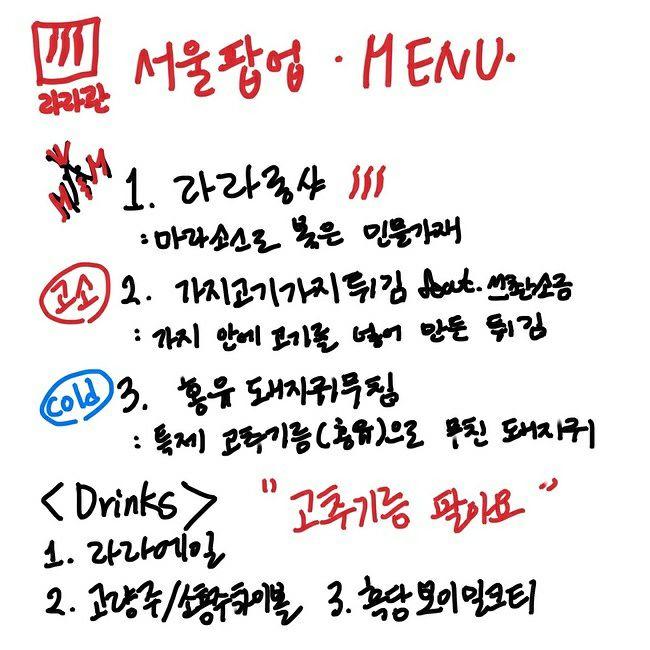 라라관
서울팝업 · MENU·
M M
1. 라라롱샤
: 마라소스로 볶은 민물가재
고소 2. 가지고기가지튀김 about. 쓰촨소금
: 가지 안에 고기를 넣어 만든 튀김
cold 3. 홍유 돼지귀무침
: 특제 고추기름(홍유)으로 무친 돼지귀
<Drinks> "고추기름 팔아요"
1. 라라에일
2. 고량주/소흥주하이볼 3. 흑당보이밀크티